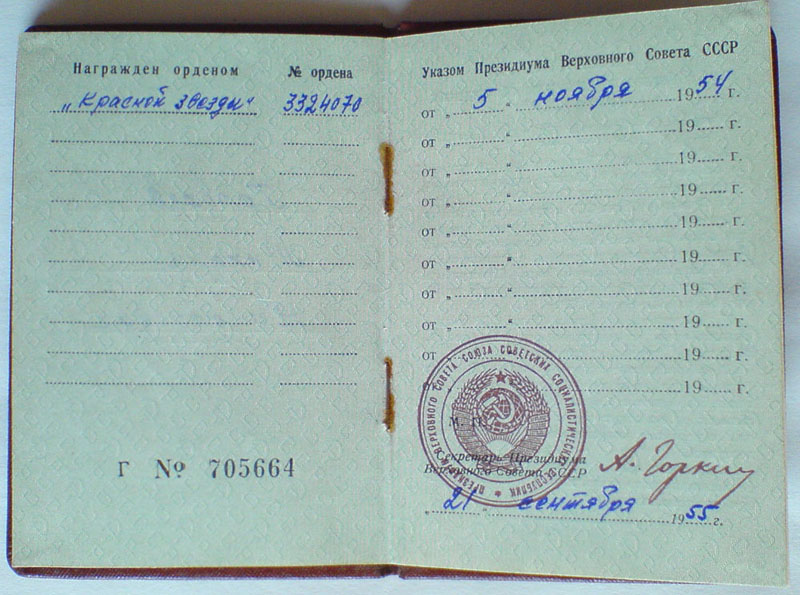 Награжден орденом № ордена
„Красной звезды“ 3324070
Г № 705664
Указом Президиума Верховного Совета СССР
от „ 5 “ ноября 1954 г.
от „ “ 19 г.
от „ “ 19 г.
от „ “ 19 г.
от „ “ 19 г.
от „ “ 19 г.
от „ “ 19 г.
от „ “ 19 г.
от „ “ 19 г.
от „ “ 19 г.
ПРЕЗИДИУМ ВЕРХОВНОГО СОВЕТА СОЮЗА СОВЕТСКИХ СОЦИАЛИСТИЧЕСКИХ РЕСПУБЛИК
М. П.
Секретарь Президиума
Верховного Совета СССР А. Горкин
„ 21 “ сентября 1955 г.